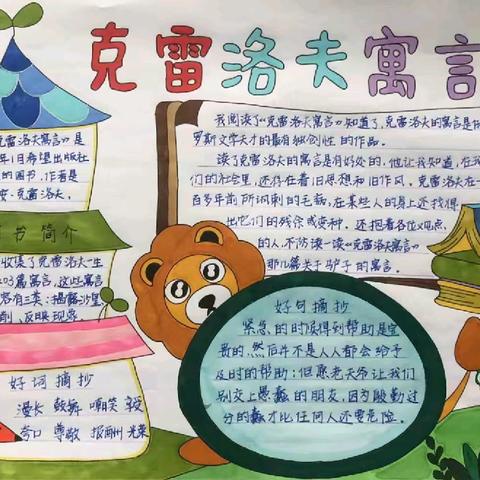 克雷洛夫寓言
克雷洛夫寓言》是
年旧希望出版社
的图书，作者是
克雷洛夫。
书简介
收集了克雷洛夫一生
203篇寓言，这些寓言
容有三类：揭露沙皇
反映现实
好词摘抄
漫长 鼓舞 嘲笑
夸口 尊敬 报酬 光荣
我阅读了《克雷洛夫寓言》知道了，克雷洛夫的寓言是俄
罗斯文学天才的最有独创性的作品。
读了克雷洛夫的寓言是有好处的，他让我知道，在我
们的社会里，还存在着旧思想和旧作风。克雷洛夫在一
百多年前所讽刺的毛病，在某些人的身上还找得
出它们的残余或变种。还抱着各位观点，
的人，不防读一读《克雷洛夫寓言》
那几篇关于驴子的寓言。
好句摘抄
紧急的时候得到帮助是宝
贵的，然后并不是人人都会给予
及时的帮助；但愿老天爷让我们
别交上愚蠢的朋友，因为殷勤过
分的蠢才比任何人还要危险。